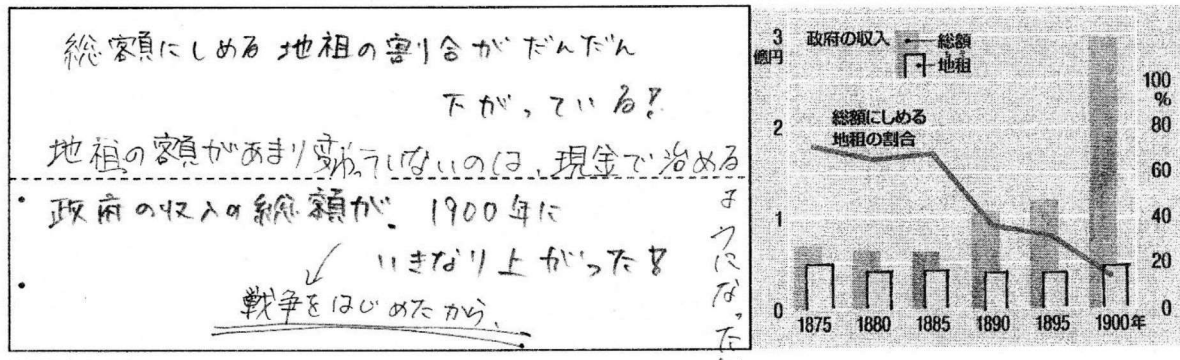 総額にしめる地祖の割り合がだんだん
下がっている?
地祖の額があまり変わっていないのは、現金で治める
ようになった
・政府の収入の総額が、1900年に
いきなり上がった?
・
戦争をはじめたから。
3
億円
2
1
0
政府の収入
総額
地租
総額にしめる
地租の割合
100
%
80
60
40
20
0
1875 1880 1885 1890 1895 1900年